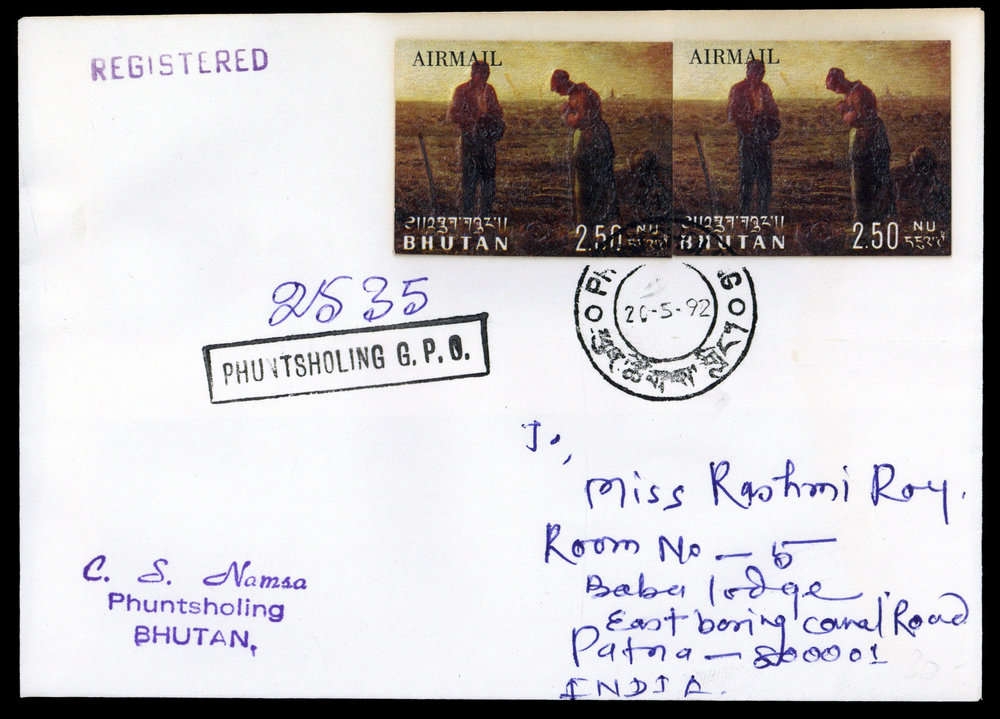 REGISTERED
AIRMAIL
BHUTAN
2.50 NU
AIRMAIL
BHUTAN
2.50 NU
2535
PHUNTSHOLING G.P.O.
20-5-92
To,
Miss Rashmi Roy.
Room No - 5
Baba lodge.
East boring canal Road
Patna - 800001
INDIA.
C. S. Namsa
Phuntsholing
BHUTAN,